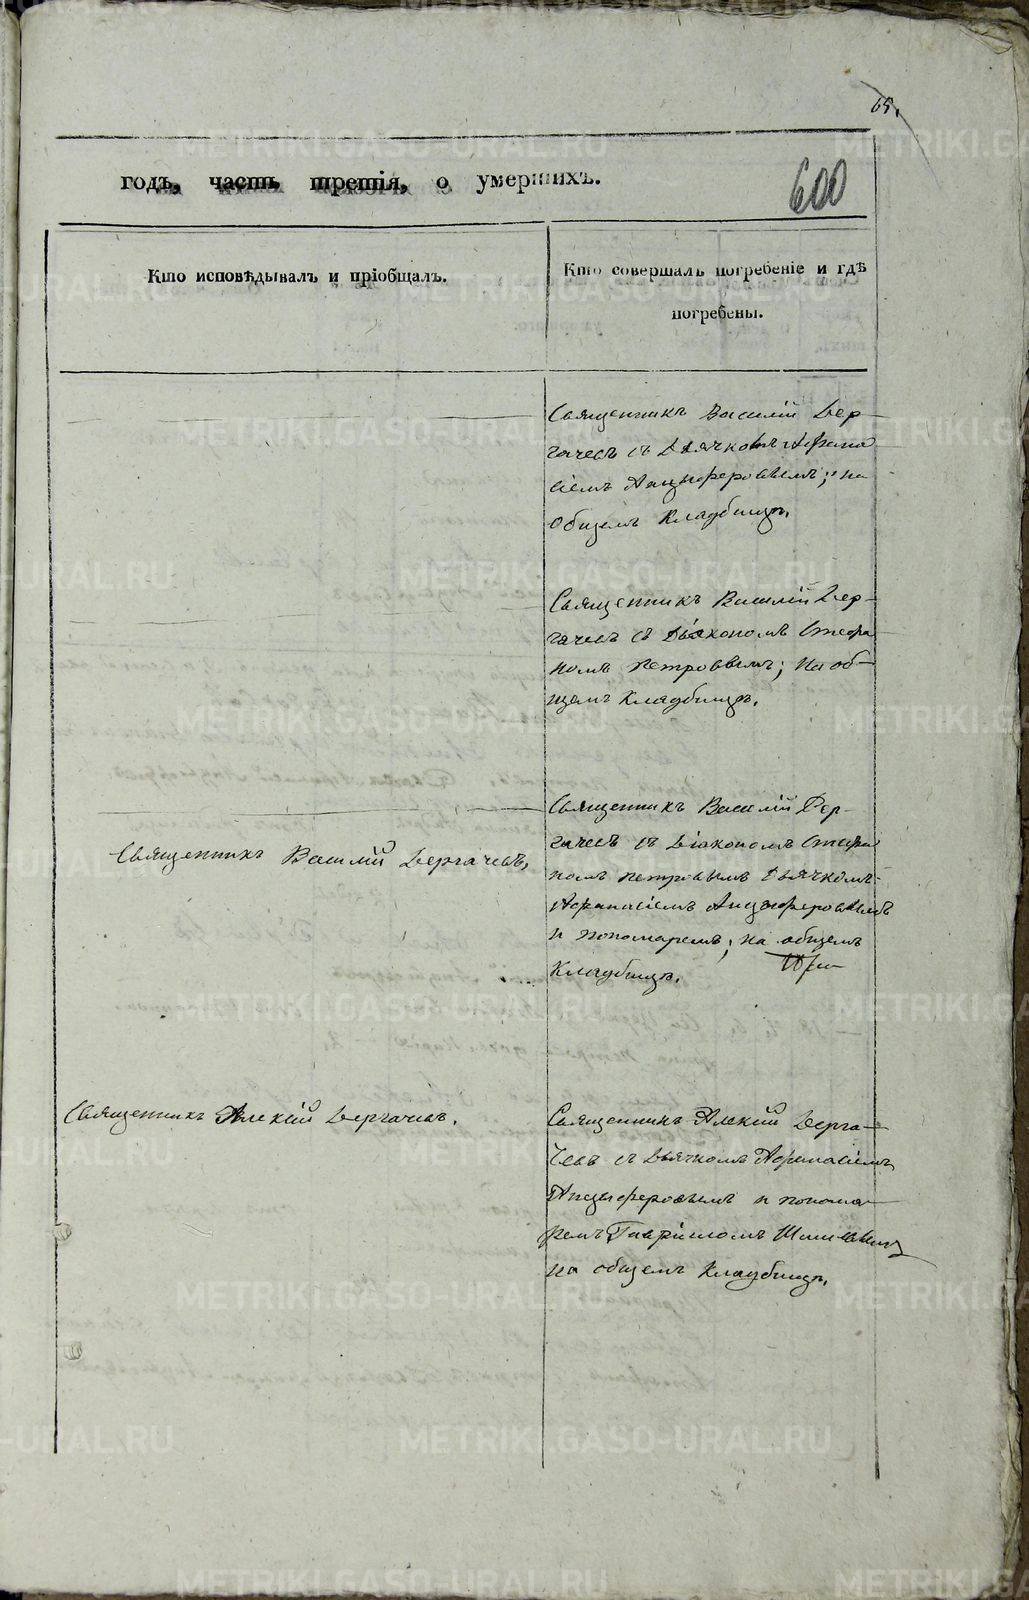 65.
600
годъ, часть третія, о умершихъ.
Кто исповѣдывалъ и пріобщалъ.
Кто совершалъ погребеніе и гдѣ
погребены.
Священникъ Василій Дер-
гачевъ съ Дьячкомъ Афана
сіемъ Анцыферовымъ; на
общемъ Кладбищѣ.
Священникъ Василій Дер-
гачевъ съ Діякономъ Стефа
номъ Петровымъ; на об-
щемъ Кладбищѣ.
Священникъ Василій Дергачевъ,
Священникъ Василій Дер-
гачевъ съ Діакономъ Стефа
номъ Петровымъ Дьячкомъ
Афанасіемъ Анцыферовымъ
и пономаремъ; на общемъ
Кладбищѣ.
Священникъ Алексій Дергачевъ.
Священникъ Алексій Дерга-
чевъ съ Дьячкомъ Афанасіемъ
Анцыферовымъ и понома-
ремъ Гавріиломъ
на общемъ Кладбищѣ.
METRIKI.GASO-URAL.RU